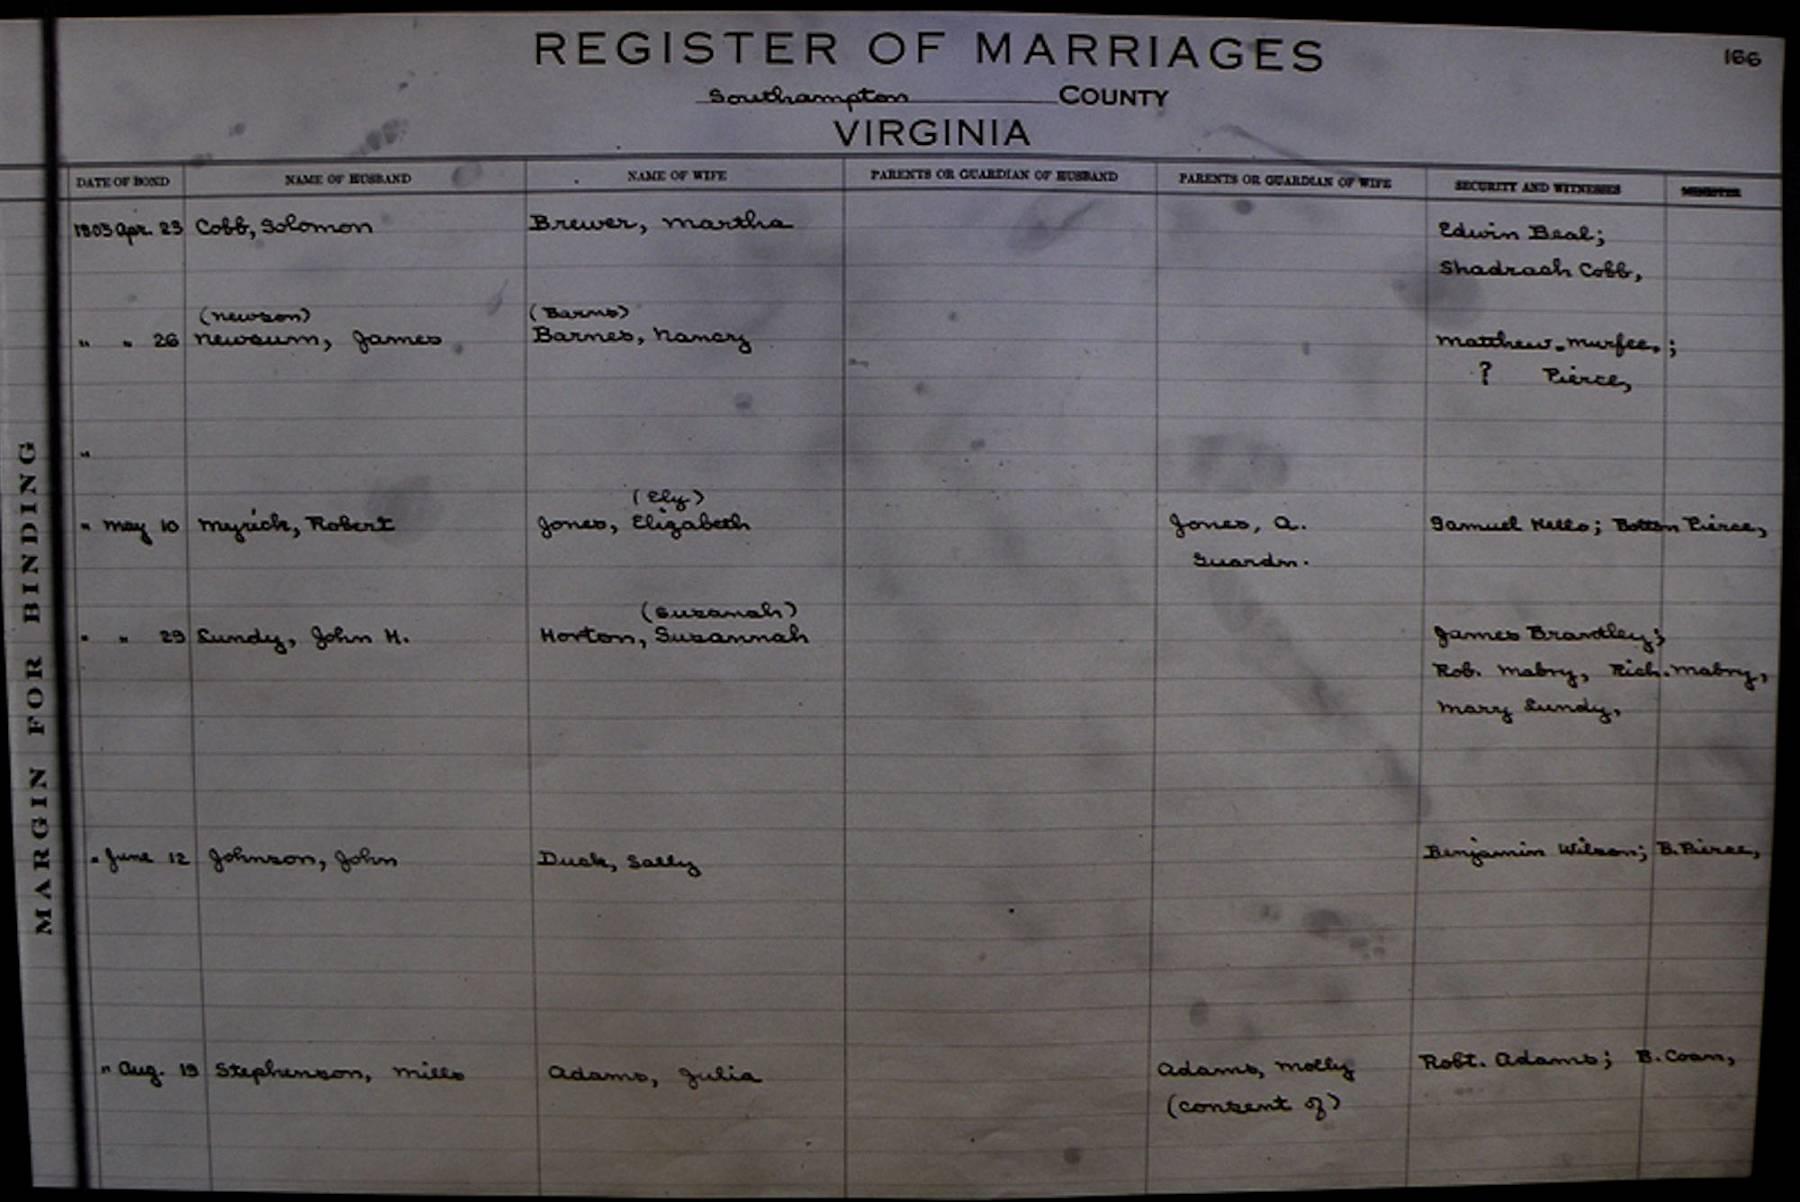 REGISTER OF MARRIAGES 166
Southampton COUNTY
VIRGINIA
MARGIN FOR BINDING
DATE OF BOND NAME OF HUSBAND NAME OF WIFE PARENTS OR GUARDIAN OF HUSBAND PARENTS OR GUARDIAN OF WIFE SECURITY AND WITNESSES MINISTER
1803 Apr. 23 Cobb, Solomon Brewer, Martha Edwin Beal;
Shadrach Cobb,
(Newson) (Barns)
" " 26 Newsum, James Barnes, Nancy Matthew Murfee,;
? Pierce,
"
(Ely)
" May 10 Myrick, Robert Jones, Elizabeth Jones, A. Samuel Kello; Botton Pierce,
Guardn.
(Susanah)
" " 29 Lundy, John H. Horton, Susannah James Brantley;
Rob. Mabry, Rich. Mabry,
Mary Lundy,
" June 12 Johnson, John Duck, Sally Benjamin Wilson; B. Pierce,
" Aug. 19 Stephenson, Mills Adams, Julia Adams, Molly Robt. Adams; B. Coan,
(consent of)